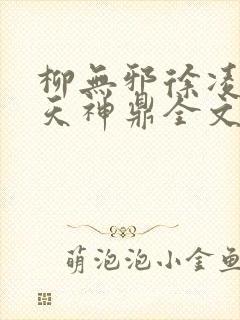 柳無邪徐凌
天神鼎全文
萌泡泡小金鱼